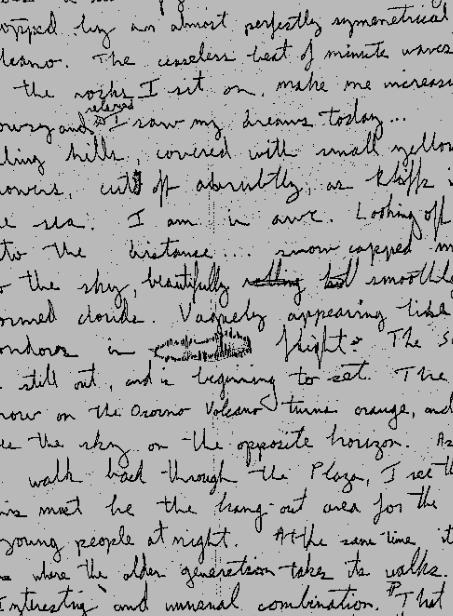 opped by an almost perfectly symmetrical
lcano. The ceaseless beat of minute waves
the rocks I sit on, make me increasi
relaxed
owsy and I saw my dreams today...
lling hills, covered with small yellow
lowers, cuts off abruptly, as kliffs i
e sea. I am in awe. Looking off
to the distance... snow capped m
o the sky, beautifully smoothly
ormed clouds. Vaguely appearing like
ondors in flight. The s
still out, and is beginning to set. The
now on the Osorno Volcano turns orange, and
e the sky on the opposite horizon. As
walk back through the Plaza, I see th
his must be the hang-out area for the
young people at night. At the same time it
s where the older generation takes its walks.
Interesting and unusual combination. That